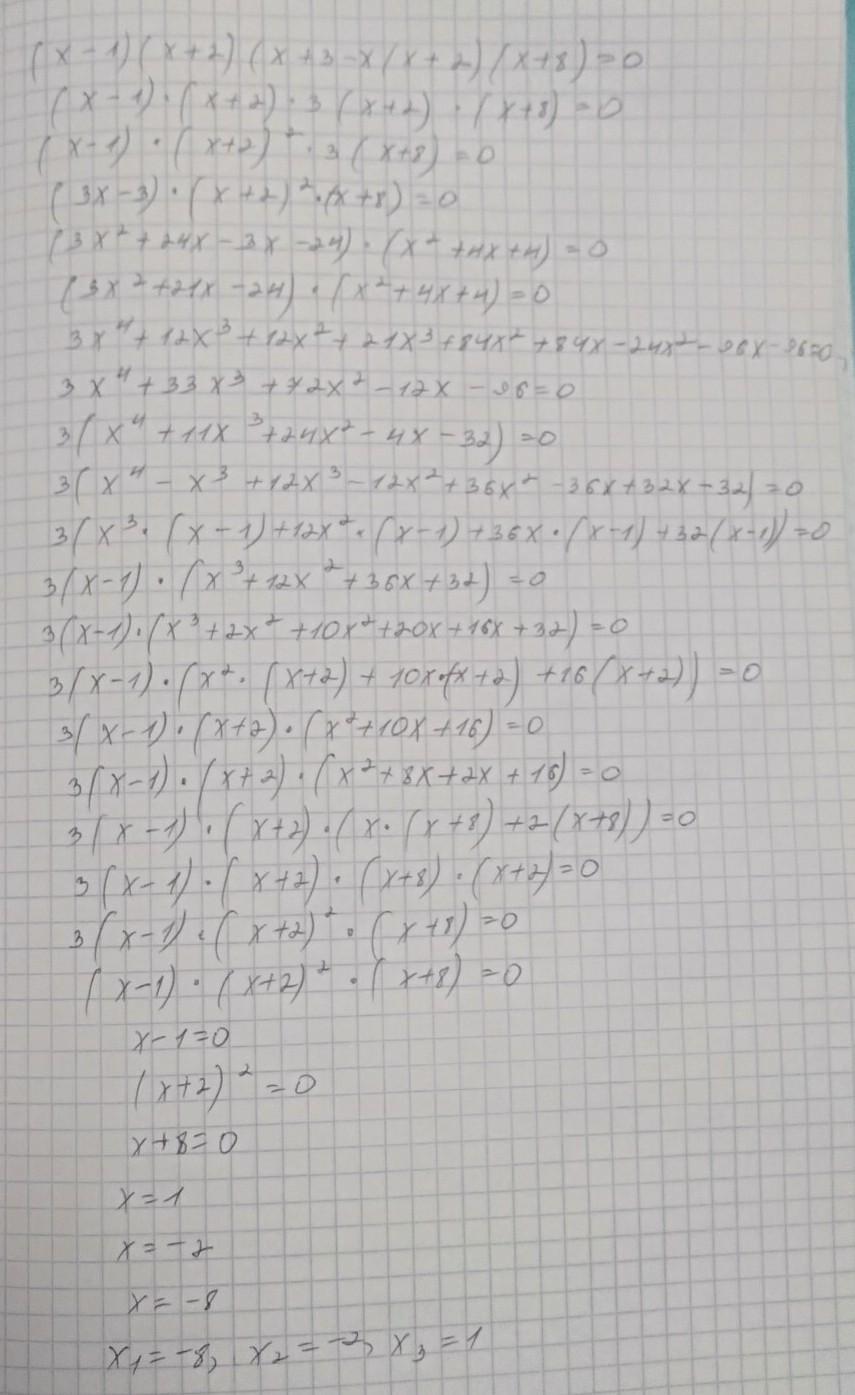 (x-1)(x+2)(x+3-x(x+2)(x+8)=0
(x-1)·(x+2)·3(x+2)·(x+8)=0
(x-1)·(x+2)²·3(x+8)=0
(3x-3)·(x+2)²·(x+8)=0
(3x²+24x-3x-24)·(x²+4x+4)=0
(3x²+21x-24)·(x²+4x+4)=0
3x⁴+12x³+12x²+21x³+84x²+84x-24x²-96x-96=0,
3x⁴+33x³+72x²-12x-96=0
3(x⁴+11x³+24x²-4x-32)=0
3(x⁴-x³+12x³-12x²+36x²-36x+32x-32)=0
3(x³·(x-1)+12x²·(x-1)+36x·(x-1)+32(x-1))=0
3(x-1)·(x³+12x²+36x+32)=0
3(x-1)·(x³+2x²+10x²+20x+16x+32)=0
3(x-1)·(x²·(x+2)+10x·(x+2)+16(x+2))=0
3(x-1)·(x+2)·(x²+10x+16)=0
3(x-1)·(x+2)·(x²+8x+2x+16)=0
3(x-1)·(x+2)·(x·(x+8)+2(x+8))=0
3(x-1)·(x+2)·(x+8)·(x+2)=0
3(x-1)·(x+2)²·(x+8)=0
(x-1)·(x+2)²·(x+8)=0
x-1=0
(x+2)²=0
x+8=0
x=1
x=-2
x=-8
x₁=-8, x₂=-2, x₃=1